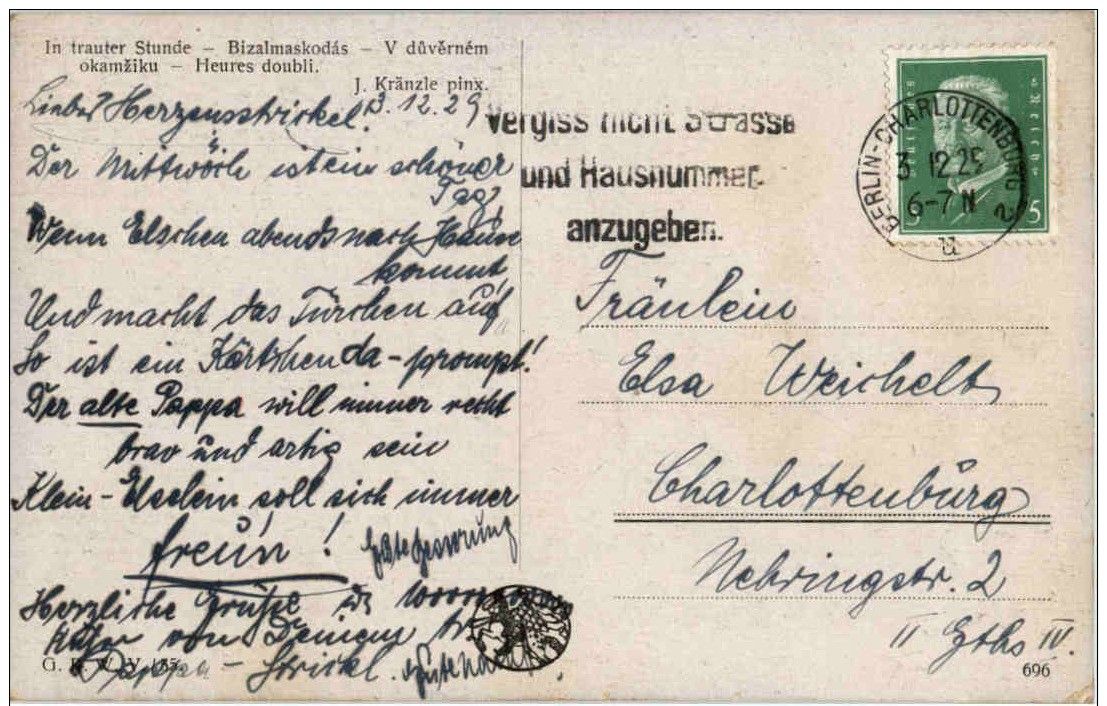 In trauter Stunde – Bizalmaskodás – V důvěrném
okamžiku – Heures doubli.
J. Kränzle pinx.
3.12.29
Liebes Herzensstrickel!
Der Mittwoch ist ein schöner
Tag
Wenn Elschen abends nach Haus
kommt
Und macht das Türchen auf
So ist ein Kärtchen da – prompt!
Der alte Pappa will immer recht
brav und artig sein
Klein-Elselein soll sich immer
freun!
Gute Besserung
Herzliche Grüße
von Deinem
Strickel. Gute
G. K. W. V.
Vergiss nicht Strasse
und Hausnummer
anzugeben.
BERLIN-CHARLOTTENBURG 2
3.12.29
6-7 N
u
5
Fräulein
Elsa Weichelt
Charlottenburg
Nehringstr. 2
II Gths IV.
696